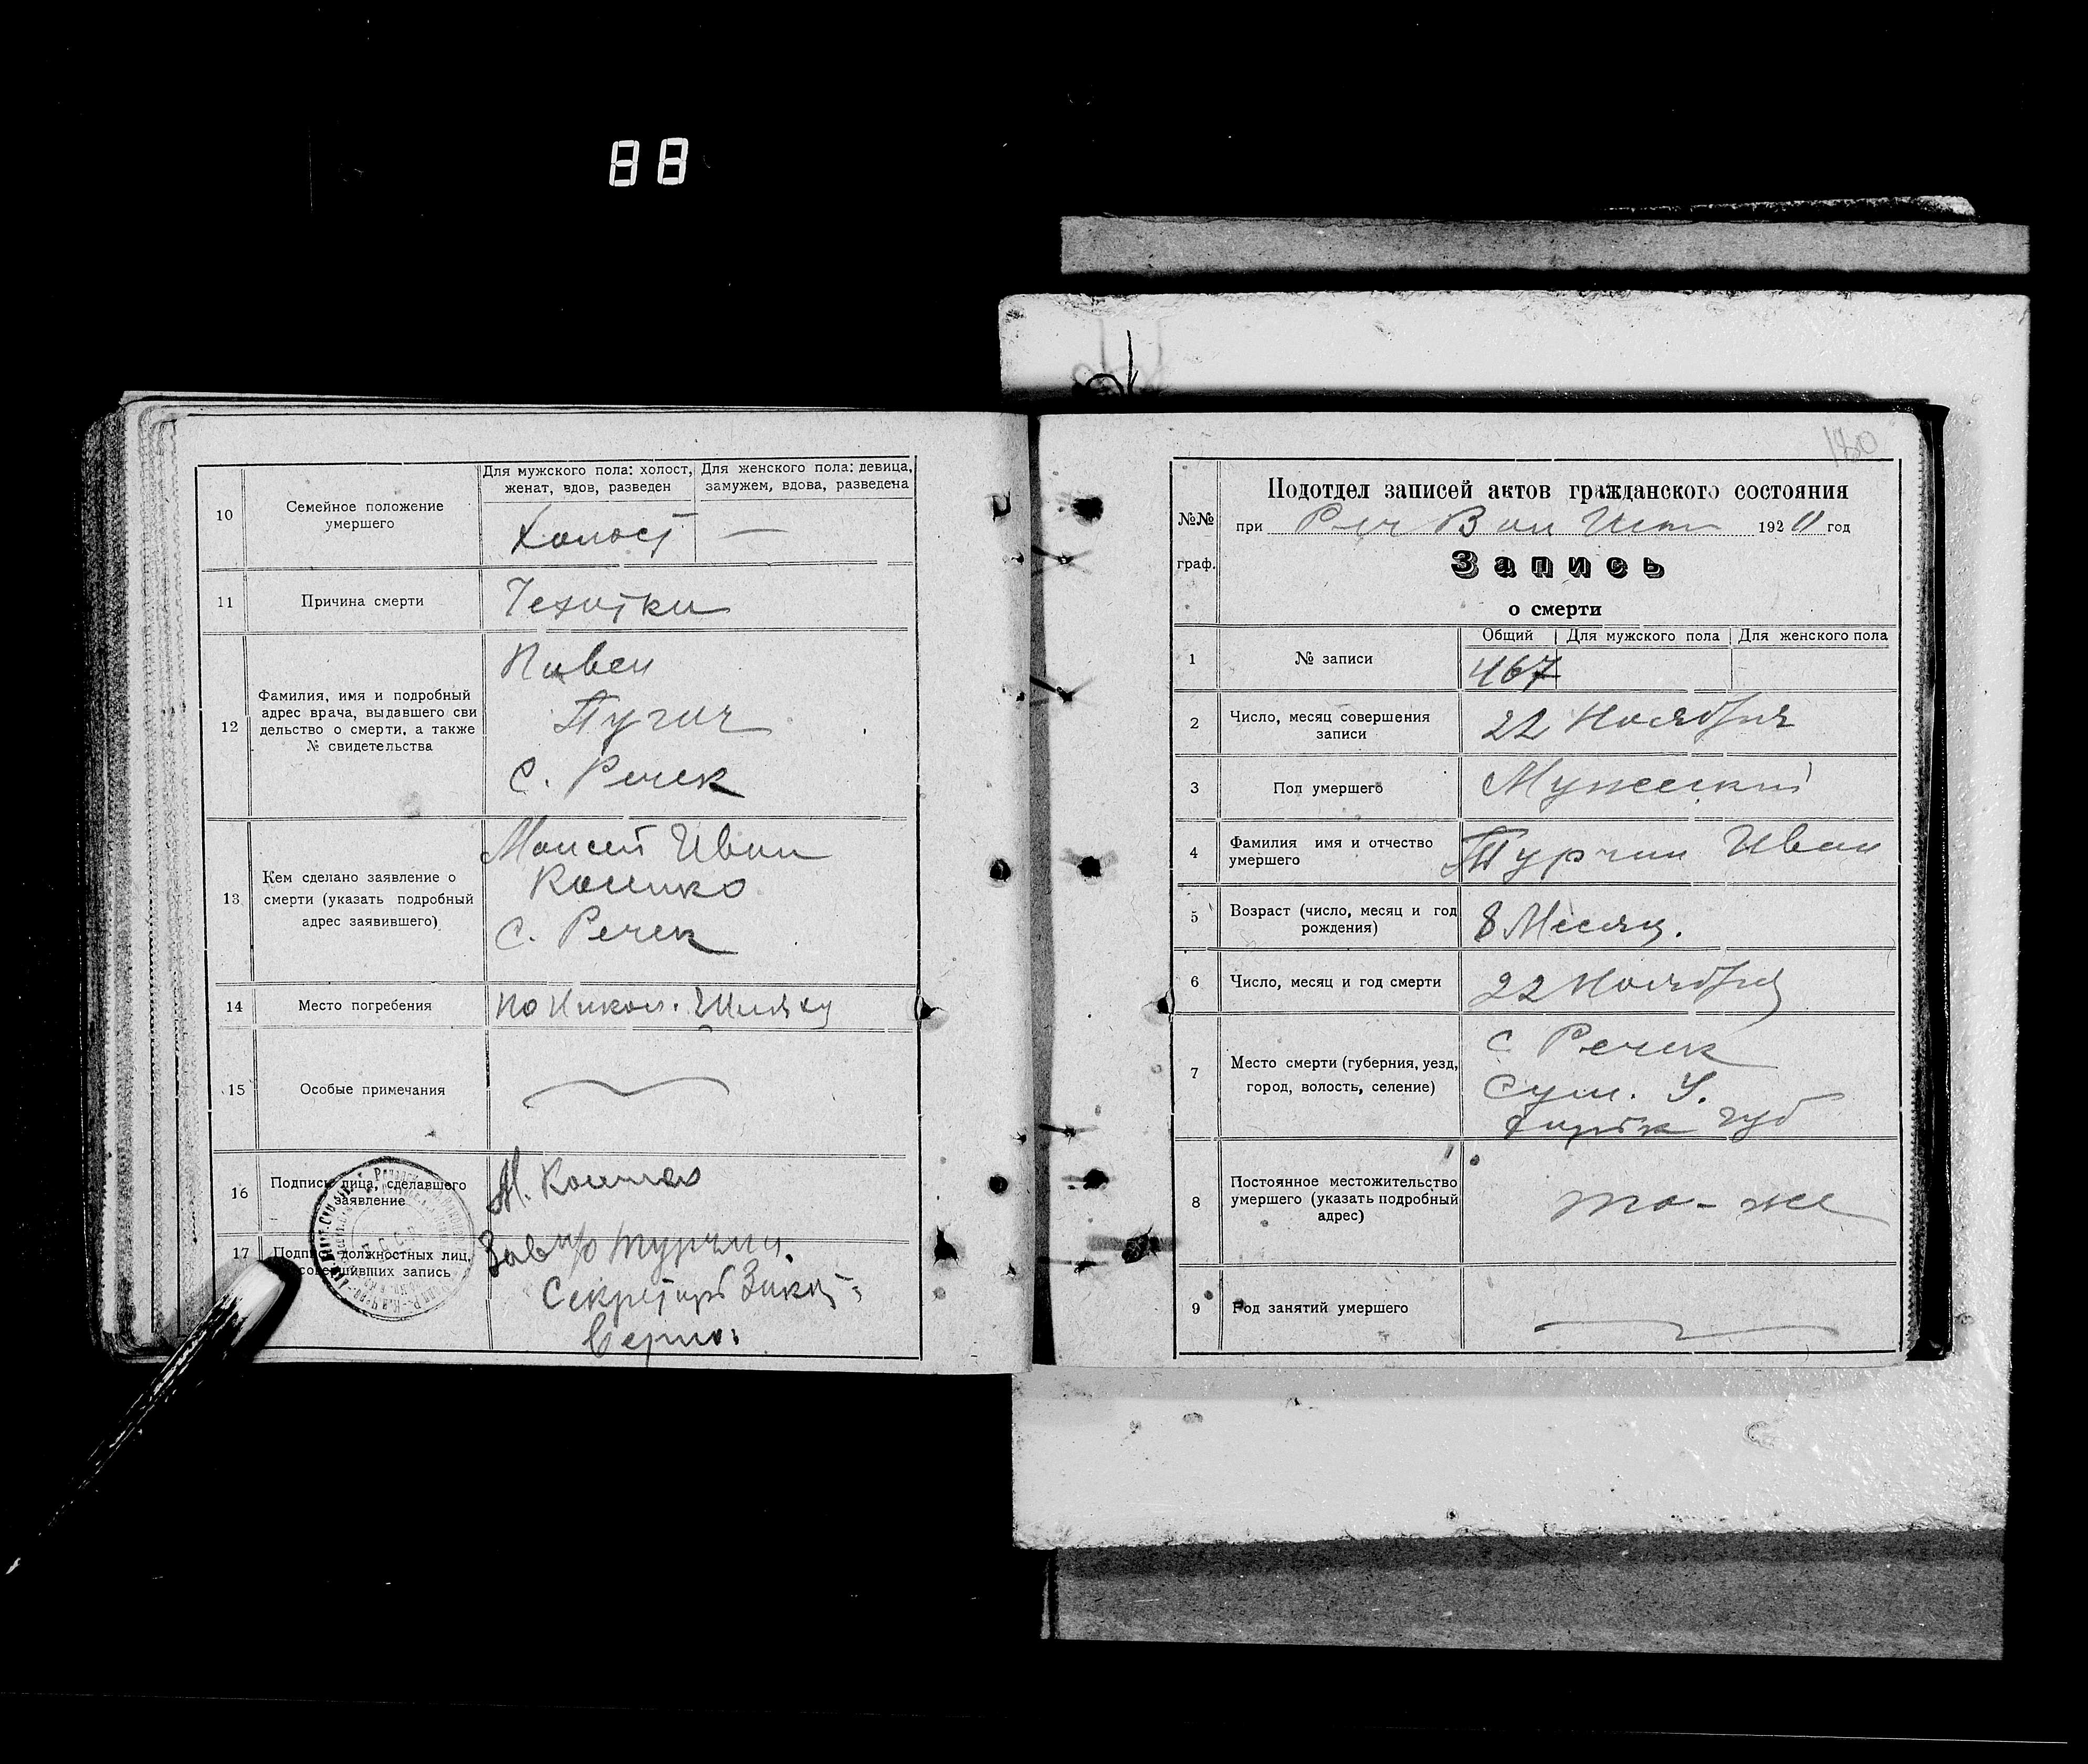 88
10
Семейное положение
умершего
Для мужского пола: холост,
женат, вдов, разведен
Для женского пола: девица,
замужем, вдова, разведена
Холост
—
11
Причина смерти
12
Фамилия, имя и подробный
адрес врача, выдавшего сви
дельство о смерти, а также
№ свидетельства
Павел
с. Речек
13
Кем сделано заявление о
смерти (указать подробный
адрес заявившего)
Моисей Иван
с. Речек
14
Место погребения
15
Особые примечания
16
Подпись лица, сделавшего
заявление
М.
17
Подписи должностных лиц,
совершивших запись
Турчин.
Секретарь
Верно:
180
№№
граф.
Подотдел записей актов гражданского состояния
при Реч Вол Исп 192 год
Запись
о смерти
1
№ записи
Общий
Для мужского пола
Для женского пола
467
2
Число, месяц совершения
записи
22 Ноября
3
Пол умершего
Мужеский
4
Фамилия имя и отчество
умершего
Турчин Иван
5
Возраст (число, месяц и год
рождения)
8 Месяц.
6
Число, месяц и год смерти
22 Ноября
7
Место смерти (губерния, уезд,
город, волость, селение)
с Речек
Сум. У.
губ
8
Постоянное местожительство
умершего (указать подробный
адрес)
то-же
9
Род занятий умершего